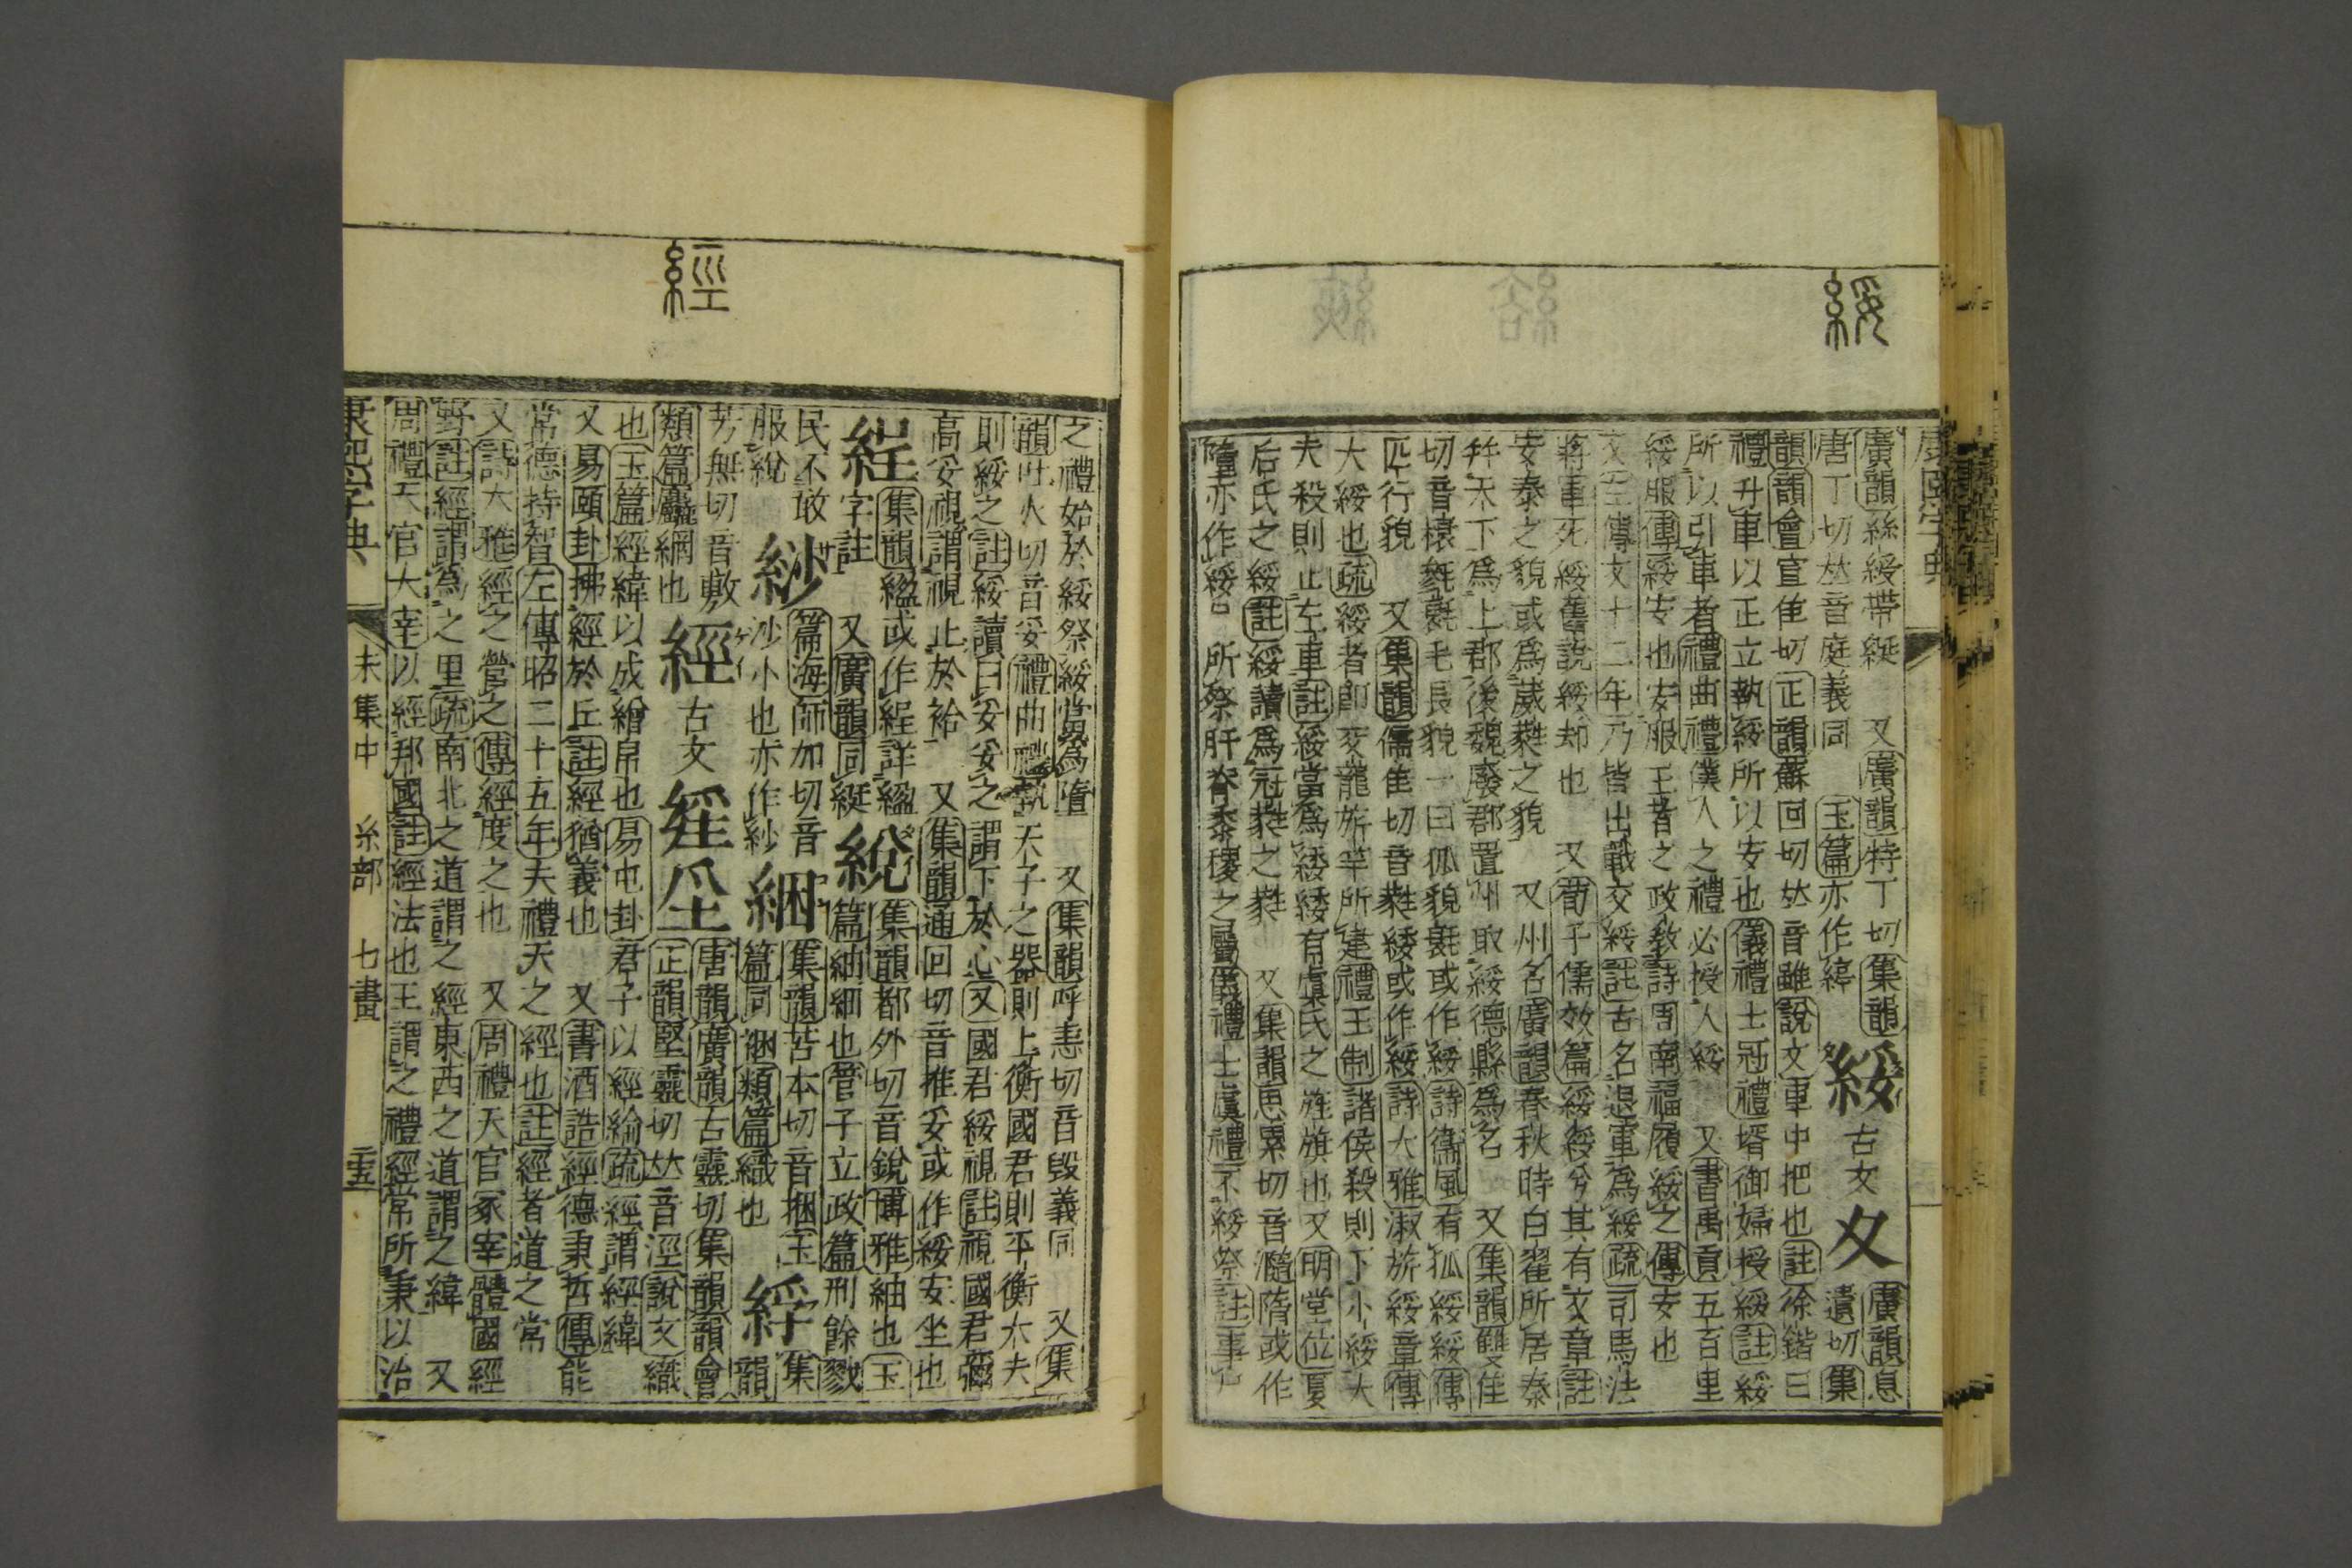 綏
廣韻絲綬帶綎　又廣韻特丁切集韻
唐丁切𠀤音庭義同　玉篇亦作䋼
綏
古文
夊
廣韻息
遺切集
韻韻會宣隹切正韻蘇回切𠀤音雖說文車中把也註徐鍇曰
禮升車以正立執綏所以安也儀禮士冠禮壻御婦授綏註綏
所以引車者禮曲禮僕人之禮必授人綏　又書禹貢五百里
綏服傳綏安也安服王者之政敎詩周南福履綏之傳安也
文十二年乃皆出戰交綏註古名退軍爲綏疏司馬法
將軍死綏舊說綏却也　又荀子儒效篇綏綏兮其有文章註
安泰之貌或爲葳蕤之貌　又州名廣韻春秋時白翟所居秦
幷天下爲上郡後魏廢郡置州取綏德縣爲名　又集韻雙隹
切音榱毿毿毛長貌一曰狐貌毿或作綏詩衞風有狐綏綏傳
匹行貌　又集韻儒隹切音蕤緌或作綏詩大雅淑旂綏章傳
大綏也疏綏者卽交龍旂竿所建禮王制諸侯殺則下小綏大
夫殺則止左車註綏當爲緌緌有虞氏之旌旗也又明堂位夏
后氏之綏註綏讀爲冠蕤之蕤　又集韻思累切音瀡隋或作
隓亦作綏　所祭肝脊黍稷之屬儀禮士虞禮不綏祭註事尸
經
之禮始於綏祭綏當爲隋　又集韻呼恚切音毀義同　又集
韻吐火切音妥禮曲禮執天子之器則上衡國君則平衡大夫
則綏之註綏讀曰妥妥之謂下於心又國君綏視註視國君彌
高妥視謂視止於袷　又集韻通回切音推妥或作綏安坐也
綎
集韻縕或作綎詳縕
字註　又廣韻同綎
綐
集韻都外切音銳博雅紬也玉
篇紬細也管子立政篇刑餘戮
民不敢
服綐
䋷
篇海師加切音
沙小也亦作紗
綑
集韻苦本切音捆玉
篇同捆類篇織也
綒
集
韻
芳無切音敷
類篇麤綢也
經
古文
𦀇𡉯
唐韻廣韻古靈切集韻韻會
正韻堅靈切𠀤音涇說文織
也玉篇經緯以成繒帛也易屯卦君子以經綸疏經謂經緯
又易頤卦拂經於丘註經猶義也　又書酒誥經德秉哲傳能
常德持智左傳昭二十五年夫禮天之經也註經者道之常
又詩大雅經之營之傳經度之也　又周禮天官冢宰體國經
野註經謂爲之里疏南北之道謂之經東西之道謂之緯　又
周禮天官大宰以經邦國註經法也王謂之禮經常所秉以治
康熙字典　未集中　糸部　七畫